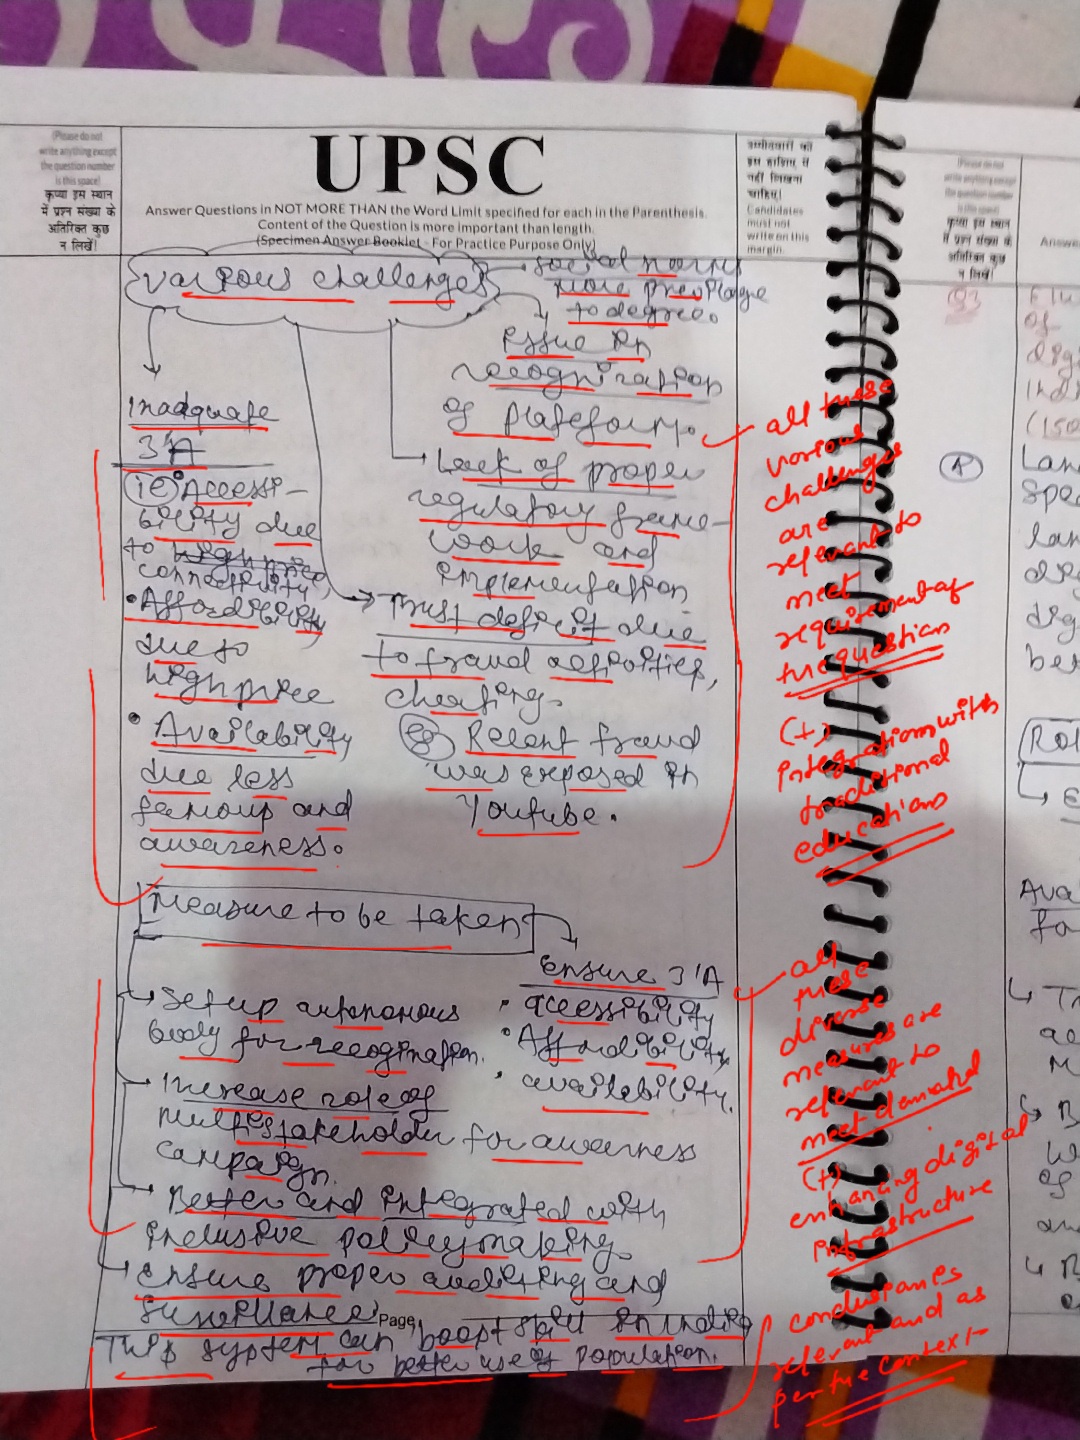 (Please do not
write anything except
the question number
is this space)
कृप्या इस स्थान
में प्रश्न संख्या के
अतिरिक्त कुछ
न लिखें।
UPSC
Answer Questions in NOT MORE THAN the Word Limit specified for each in the Parenthesis.
Content of the Question is more important than length.
(Specimen Answer Booklet - For Practice Purpose Only)
उम्मीदवारों को
इस हाशिए में
नहीं लिखना
चाहिए।
Candidates
must not
write on this
margin.
various challenges
social norms
more privilage
to degree.
issue in
recognization
of plateform.
Inadquate
3'A
(ie) Accessi-
bility due
to
connectivity,
• Affordibility
due to
high price
• Availability
due less
famous and
awareness.
Lack of proper
regulatory frame-
work and
implementation
Trust deficit due
to fraud activities,
cheating.
eg Recent fraud
was exposed in
Youtube.
all these
various
challenges
are
relevant to
meet
requirement of
the question
(+)
integration with
traditional
educations
Measure to be taken
Ensure 3'A
• accessibility
• Affordibility
• availability.
Setup autonomous
body for recogination.
Increase role of
multistakeholder for awarness
campaign.
Better and integrated with
inclusive policymaking.
Ensure proper auditing and
Surveillance
Page
This system can boost skill in India
for better use of population.
all
these
diverse
measures are
relevant to
meet demand
(+)
enhancing digital
infrastructure
conclusion is
relevant and as
per the context
(Please do not
write anything except
the question number
is this space)
कृप्या इस स्थान
में प्रश्न संख्या के
अतिरिक्त कुछ
न लिखें।
Answe
Q3
of
(150
A